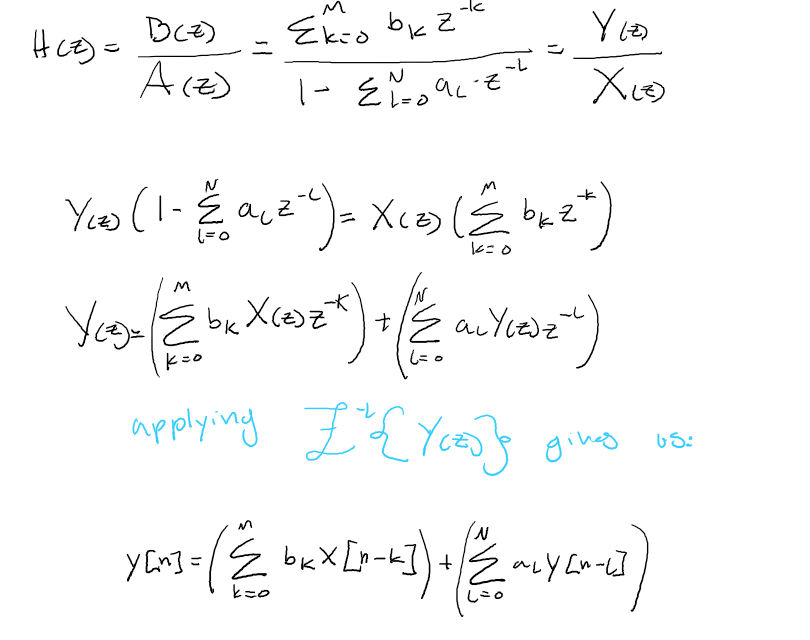 H(z) = B(z)/A(z) = Σ_{k=0}^{M} b_k z^{-k} / 1 - Σ_{l=0}^{N} a_l · z^{-l} = Y(z)/X(z)
Y(z) (1 - Σ_{l=0}^{N} a_l z^{-l}) = X(z) (Σ_{k=0}^{M} b_k z^{-k})
Y(z) = (Σ_{k=0}^{M} b_k X(z) z^{-k}) + (Σ_{l=0}^{N} a_l Y(z) z^{-l})
applying Z^{-1}{Y(z)} gives us:
y[n] = (Σ_{k=0}^{M} b_k x[n-k]) + (Σ_{l=0}^{N} a_l y[n-l])